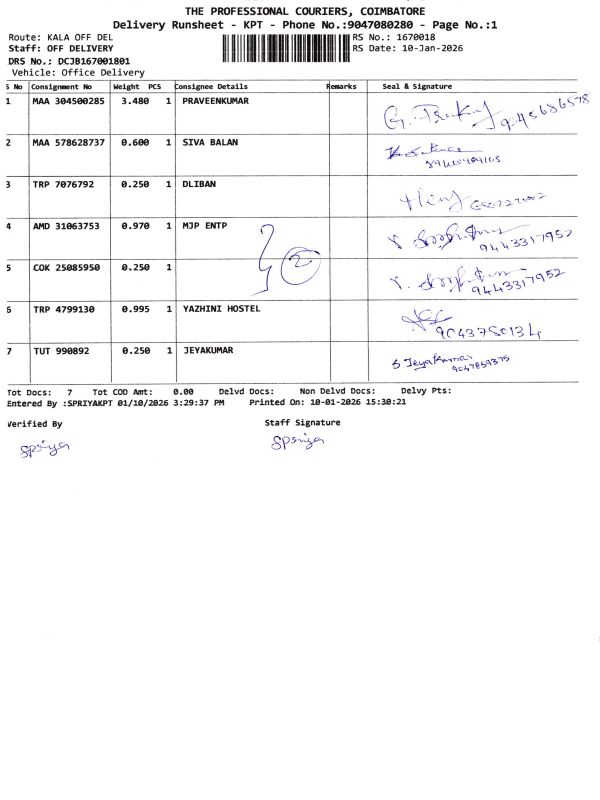 THE PROFESSIONAL COURIERS, COIMBATORE
Delivery Runsheet - KPT - Phone No.:9047080280 - Page No.:1
Route: KALA OFF DEL RS No.: 1670018
Staff: OFF DELIVERY RS Date: 10-Jan-2026
DRS No.: DCJB167001801
Vehicle: Office Delivery
S No Consignment No Weight PCS Consignee Details Remarks Seal & Signature
1 MAA 304500285 3.480 1 PRAVEENKUMAR
2 MAA 578628737 0.600 1 SIVA BALAN
3 TRP 7076792 0.250 1 DLIBAN
4 AMD 31063753 0.970 1 MJP ENTP 9443317952
2
5 COK 25085950 0.250 1 9443317952
6 TRP 4799130 0.995 1 YAZHINI HOSTEL 9043750134
7 TUT 990892 0.250 1 JEYAKUMAR S Jeyakumar
9047859375
Tot Docs: 7 Tot COD Amt: 0.00 Delvd Docs: Non Delvd Docs: Delvy Pts:
Entered By :SPRIYAKPT 01/10/2026 3:29:37 PM Printed On: 10-01-2026 15:30:21
Verified By Staff Signature
Spriya Spriya